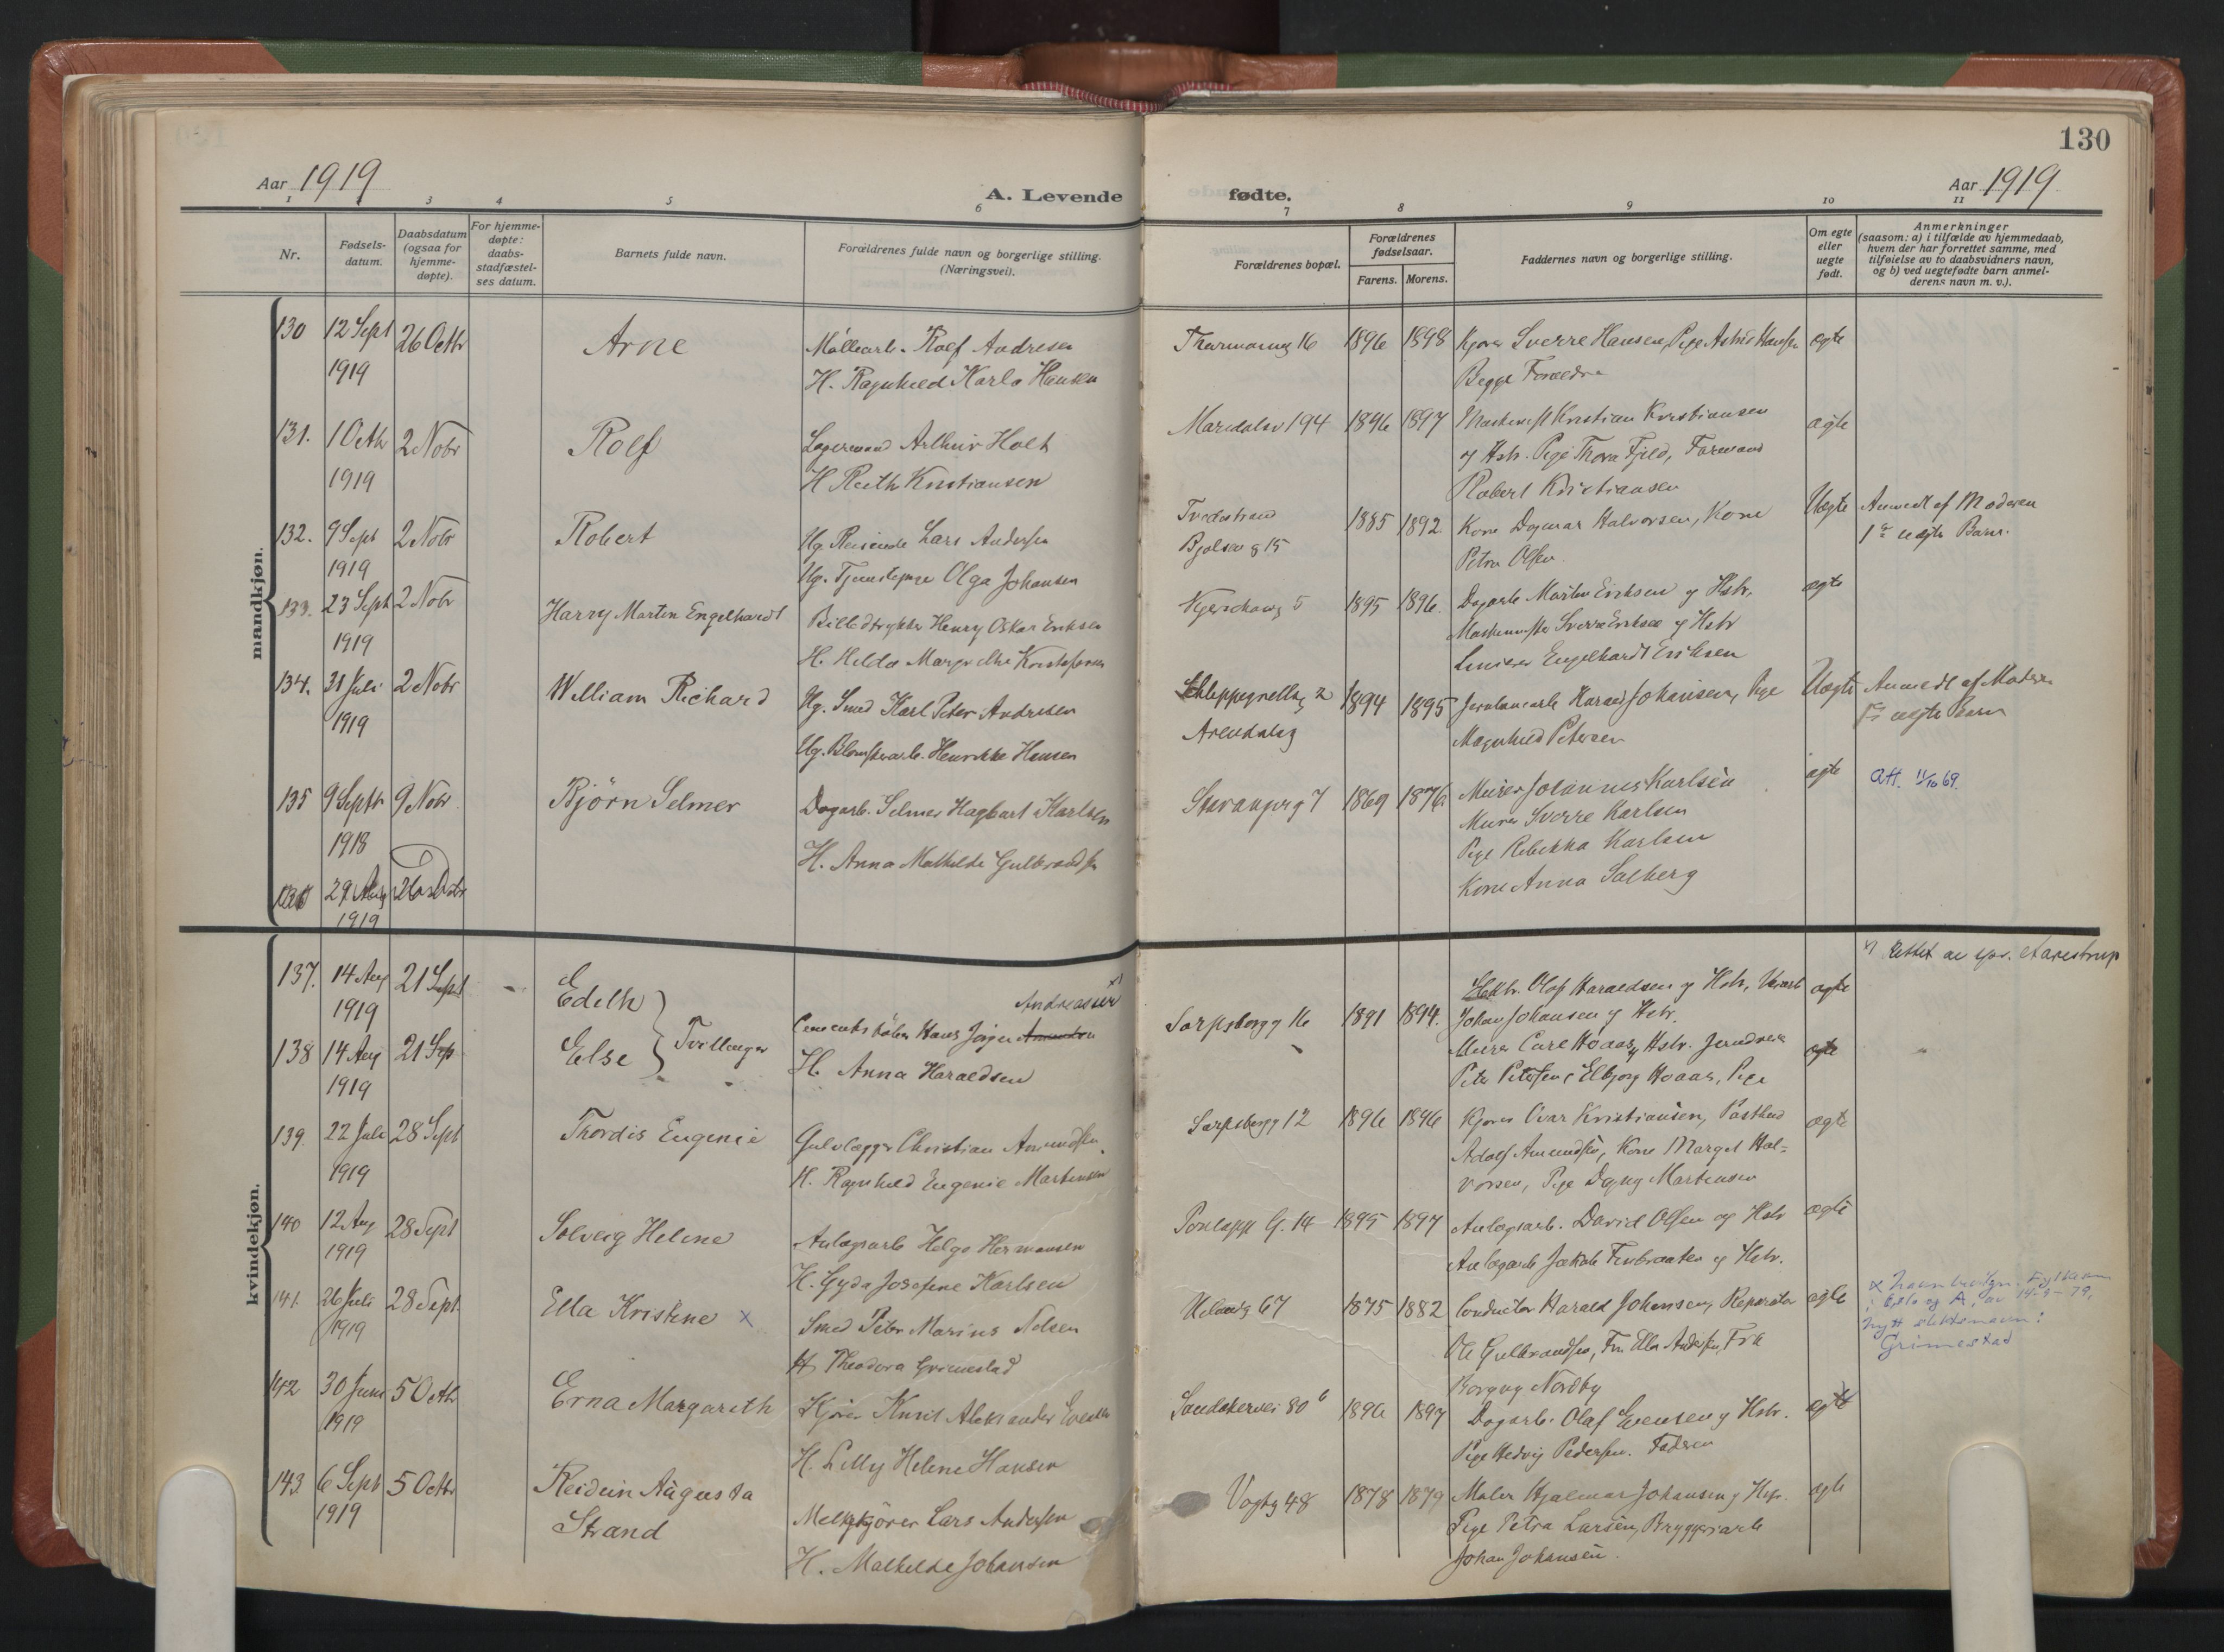 130
Aar 1919
A. Levende fødte.
Aar 1919
1 2 3 4 5 6 7 8 9 10 11
Nr.
Fødsels-
datum.
Daabsdatum
(ogsaa for
hjemme-
døpte).
For hjemme-
døpte:
daabs-
stadfæstel-
ses datum.
Barnets fulde navn.
Forældrenes fulde navn og borgerlige stilling.
(Næringsvei).
Forældrenes bopæl.
Forældrenes
fødselsaar.
Farens. Morens.
Faddernes navn og borgerlige stilling.
Om egte
eller
uegte
født.
Anmerkninger
(saasom: a) i tilfælde av hjemmedaab,
hvem der har forrettet samme, med
tilføielse av to daabsvidners navn,
og b) ved uegtefødte barn anmel-
derens navn m. v.).
mandkjøn.
130 12 Sept 26 Octbr Arne Møllearb. Rolf Andresen 16 1896 1898 Kjører Sverre Hansen, Pige Astrid Hansen ægte
1919 H. Ragnhild Karla Hansen Begge Forældre
131. 1 Octbr 2 Nobr Rolf Lagermand Arthur Holt Maridalsv 194 1896 1897 Maskinist Kristian Kristiansen ægte
1919 H Ruth Kristiansen og Hstr. Pige Thora Fjeld, Formand
Robert Kristiansen
132. 9 Sept 2 Nobr Robert Ug. Reisende Lars Andersen Tvedestrand 1885 1892. Kone Dagmar Halvorsen, Kone Uægte Anmeldt af Moderen
1919 Ug. Tjenestepige Olga Johansen Bjølsen g 15 Petra Olsen 1ste uægte Barn.
133. 23 Sept 2 Nobr Harry Martin Engelhardt Billedtrykker Henry Oskar Eriksen 5 1895 1896. Dagarb Martin Eriksen og Hstr. ægte
1919 H. Hilda Margrethe Kristofersen Sverre Eriksen og Hstr
Engelhardt Eriksen
134. 31 Juli 2 Nobr William Richard Ug. Smed Karl Peter Andresen Schleppegrellsg 2 1894 1895 Jernbanearb Harald Johansen, Pige Uægte Anmeldt af Moderen
1919 Ug. Blomsterarb. Henrikke Hansen Arendalsg Magnhild Petersen uægte Barn
135 9 Septbr 9 Nobr Bjørn Selmer Dagarb. Selmer Hagbart Karlsen Stavangerg 7 1869 1876 Murer Johannes Karlsen ægte Att. 11/10 69.
1918 H. Anna Mathilde Gulbrandsen Murer Sverre Karlsen
Pige Rebekka Karlsen
29 Aug 26 Octbr Kone Anna Solberg
1919
kvindekjøn.
x) Rettet av spr. Aarestrup
137. 14 Aug 21 Sept Edith Andreassen x) Olaf Haraldsen og Hstr, ægte
1919 Tvillinger Cementstøber Hans Jørgen Sarpsborgg 16 1891 1894. Johan Johansen og Hstr.
138 14 Aug 21 Sep Else H. Anna Haraldsen Murer Carl Hoaas og Hstr. ægte
1919 Peter Petersen, Elbjørg Hoaas, Pige
139. 22 Juli 28 Sept Thordis Eugenie Gulvlægger Christian Amundsen Sarpsborgg 12 1896 1896 Kjører Ivar Kristiansen, Postbud ægte
1919 H. Ragnhild Eugenie Martinsen Adolf Amundsen, Kone Margit Hal-
vorsen, Pige Dagny Martinsen
140 12 Aug 28 Sept Solveig Helene Anlægsarb Helge Hermansen G. 14 1895 1897 Anlægsarb. David Olsen og Hstr ægte
1919 H. Gyda Josefine Karlsen Anlægsarb Jakob Finbraaten og Hstr.
141. 26 Juli 28 Sept. Ella Kristine x Smed Peter Marius Nelsen Uelandsg 67 1875 1882 Conductør Harald Johansen, Reparatør ægte x Navnbevilgn. Fylkesm
i Oslo og A, av 14-9-79,
nytt slektsnavn:
Grimestad
1919 H Theodora Grimestad Ole Gulbrandsen, Fru Ella Andersen, Frk
Borgny Nordby
142 30 Juni 5 Octbr Erna Margareth Kjører Knut Aleksander Evensen Sandakervei 80 b 1896 1897 Dagarb. Olaf Evensen og Hstr. ægte
1919 H. Lilly Helene Hansen Pige Hedvig Pedersen. Faderen
143. 6 Sept 5 Octbr Reidun Augusta Melkekjører Lars Andersen Vogtsg 48 1878 1879 Maler Hjalmar Johansen og Hstr. ægte
1919 Strand H. Mathilde Johansen Pige Petra Larsen, Bryggeriarb
Johan Johansen.